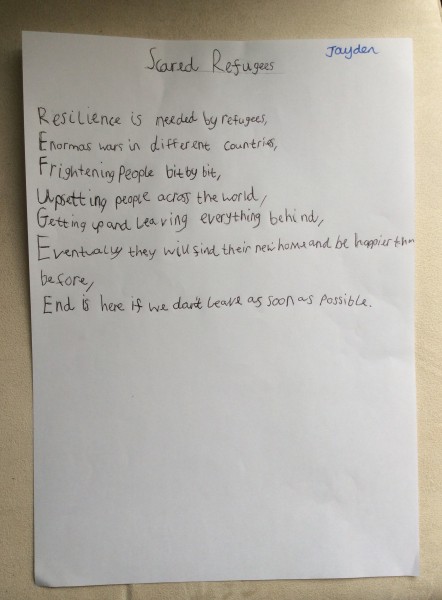 Scared Refugees
Jayden
Resilience is needed by refugees,
Enormas wars in different countries,
Frightening People bit by bit,
Upsetting people across the world,
Getting up and leaving everything behind,
Eventually they will find their new home and be happier than
before,
End is here if we don't leave as soon as possible.